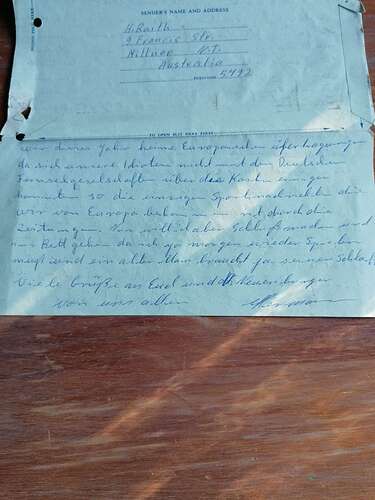 SENDER'S NAME AND ADDRESS
H. Raith
9 Francis Str.
Millner N.T.
Australia
POSTCODE 5792
TO OPEN SLIT HERE FIRST
wir dieses Jahr keine Europa
da sich unsere Idioten nicht mit den Deutschen
Fernsehgesellschaften über des Kosten einigen
konnten so die einzigen Sportnachrichten die
wir von Europa bekommen ist durch die
Zeitungen. Ich will daher Schluß machen und
ins Bett gehen da ich ja morgen wieder
muß und ein alter Mann braucht ja seinen Schlaf
Viele Grüße an Euch und
von uns allen